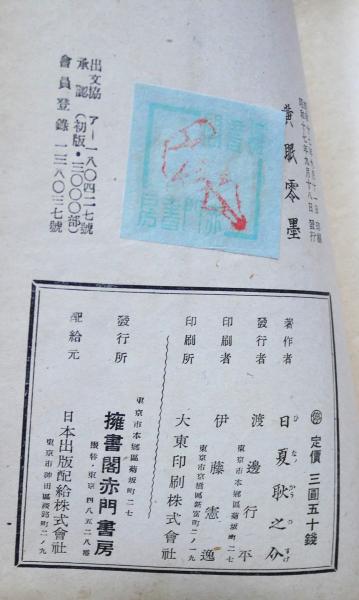 昭和十七年九月十八日發行
黄眠零墨
出文協
承認 アー一八〇四二七號
(初版・三〇〇〇部)
會員登錄 一三八〇三七號
定價 三圓五十錢
著作者 日夏耿之介
ひなつかうのすけ
發行者 渡邊行平
東京市本鄉區菊坂町二七
印刷者 伊藤憲逸
東京市京橋區新富町二ノ一九
印刷所 大東印刷株式會社
東京市本鄉區菊坂町二七
發行所 擁書閣赤門書房
振替・東京 四八五二八番
配給元 日本出版配給株式會社
東京市神田區淡路町二ノ九